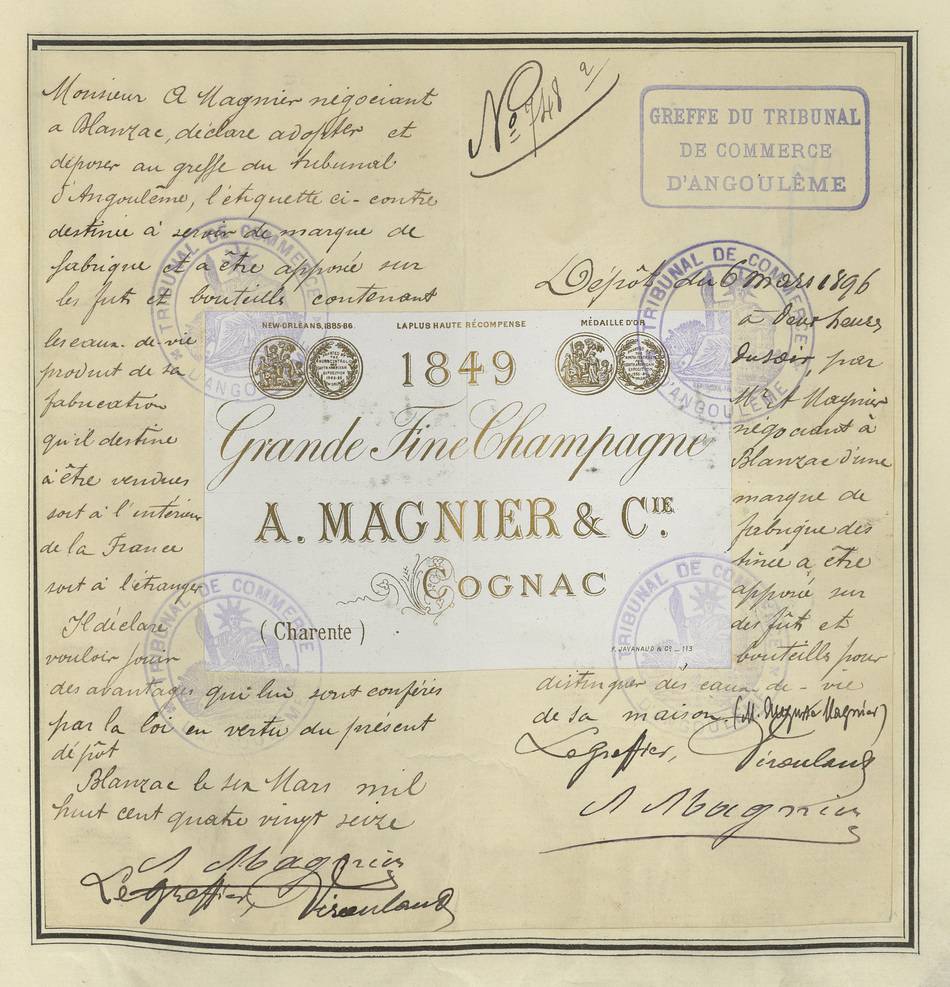 Monsieur A Magnier négociant
a Blanzac, déclare adopter et
déposer au greffe du tribunal
d'Angoulême, l'étiquette ci-contre
destinée à servir de marque de
fabrique et a être apposée sur
les futs et bouteills contenant
les eaux-de-vie
produit de sa
fabrication
qu'il destine
à être vendues
soit à l'intérieur
de la France
soit à l'étranger
Il déclare
vouloir jouir
des avantages qui lui sont conférés
par la loi en vertu du présent
dépôt
Blanzac le six Mars mil
huit cent quatre vingt seize
A Magnier
Le greffier,
No 748
GREFFE DU TRIBUNAL
DE COMMERCE
D'ANGOULÊME
Dépôt du 6 mars 1896
à deux heures
du soir, par
Mr A Magnier
négociant à
Blanzac d'une
marque de
fabrique des
tinée a être
apposée sur
des fûts et
bouteills pour
distinguer des eaux-de-vie
de sa maison (M. Auguste Magnier)
Le greffier,
A Magnier
NEW-ORLÉANS, 1885-86 LA PLUS HAUTE RÉCOMPENSE MÉDAILLE D'OR
1849
Grande Fine Champagne
A. MAGNIER & CIE.
COGNAC
(Charente)
F. JAVANAUD & Cº _ 113
TRIBUNAL DE COMMERCE
D'ANGOULÊME
TRIBUNAL DE COMMERCE
D'ANGOULÊME
TRIBUNAL DE COMMERCE
TRIBUNAL DE COMMERCE